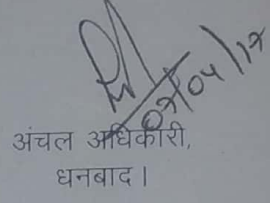 07/04/17
अंचल अधिकारी,
धनबाद।